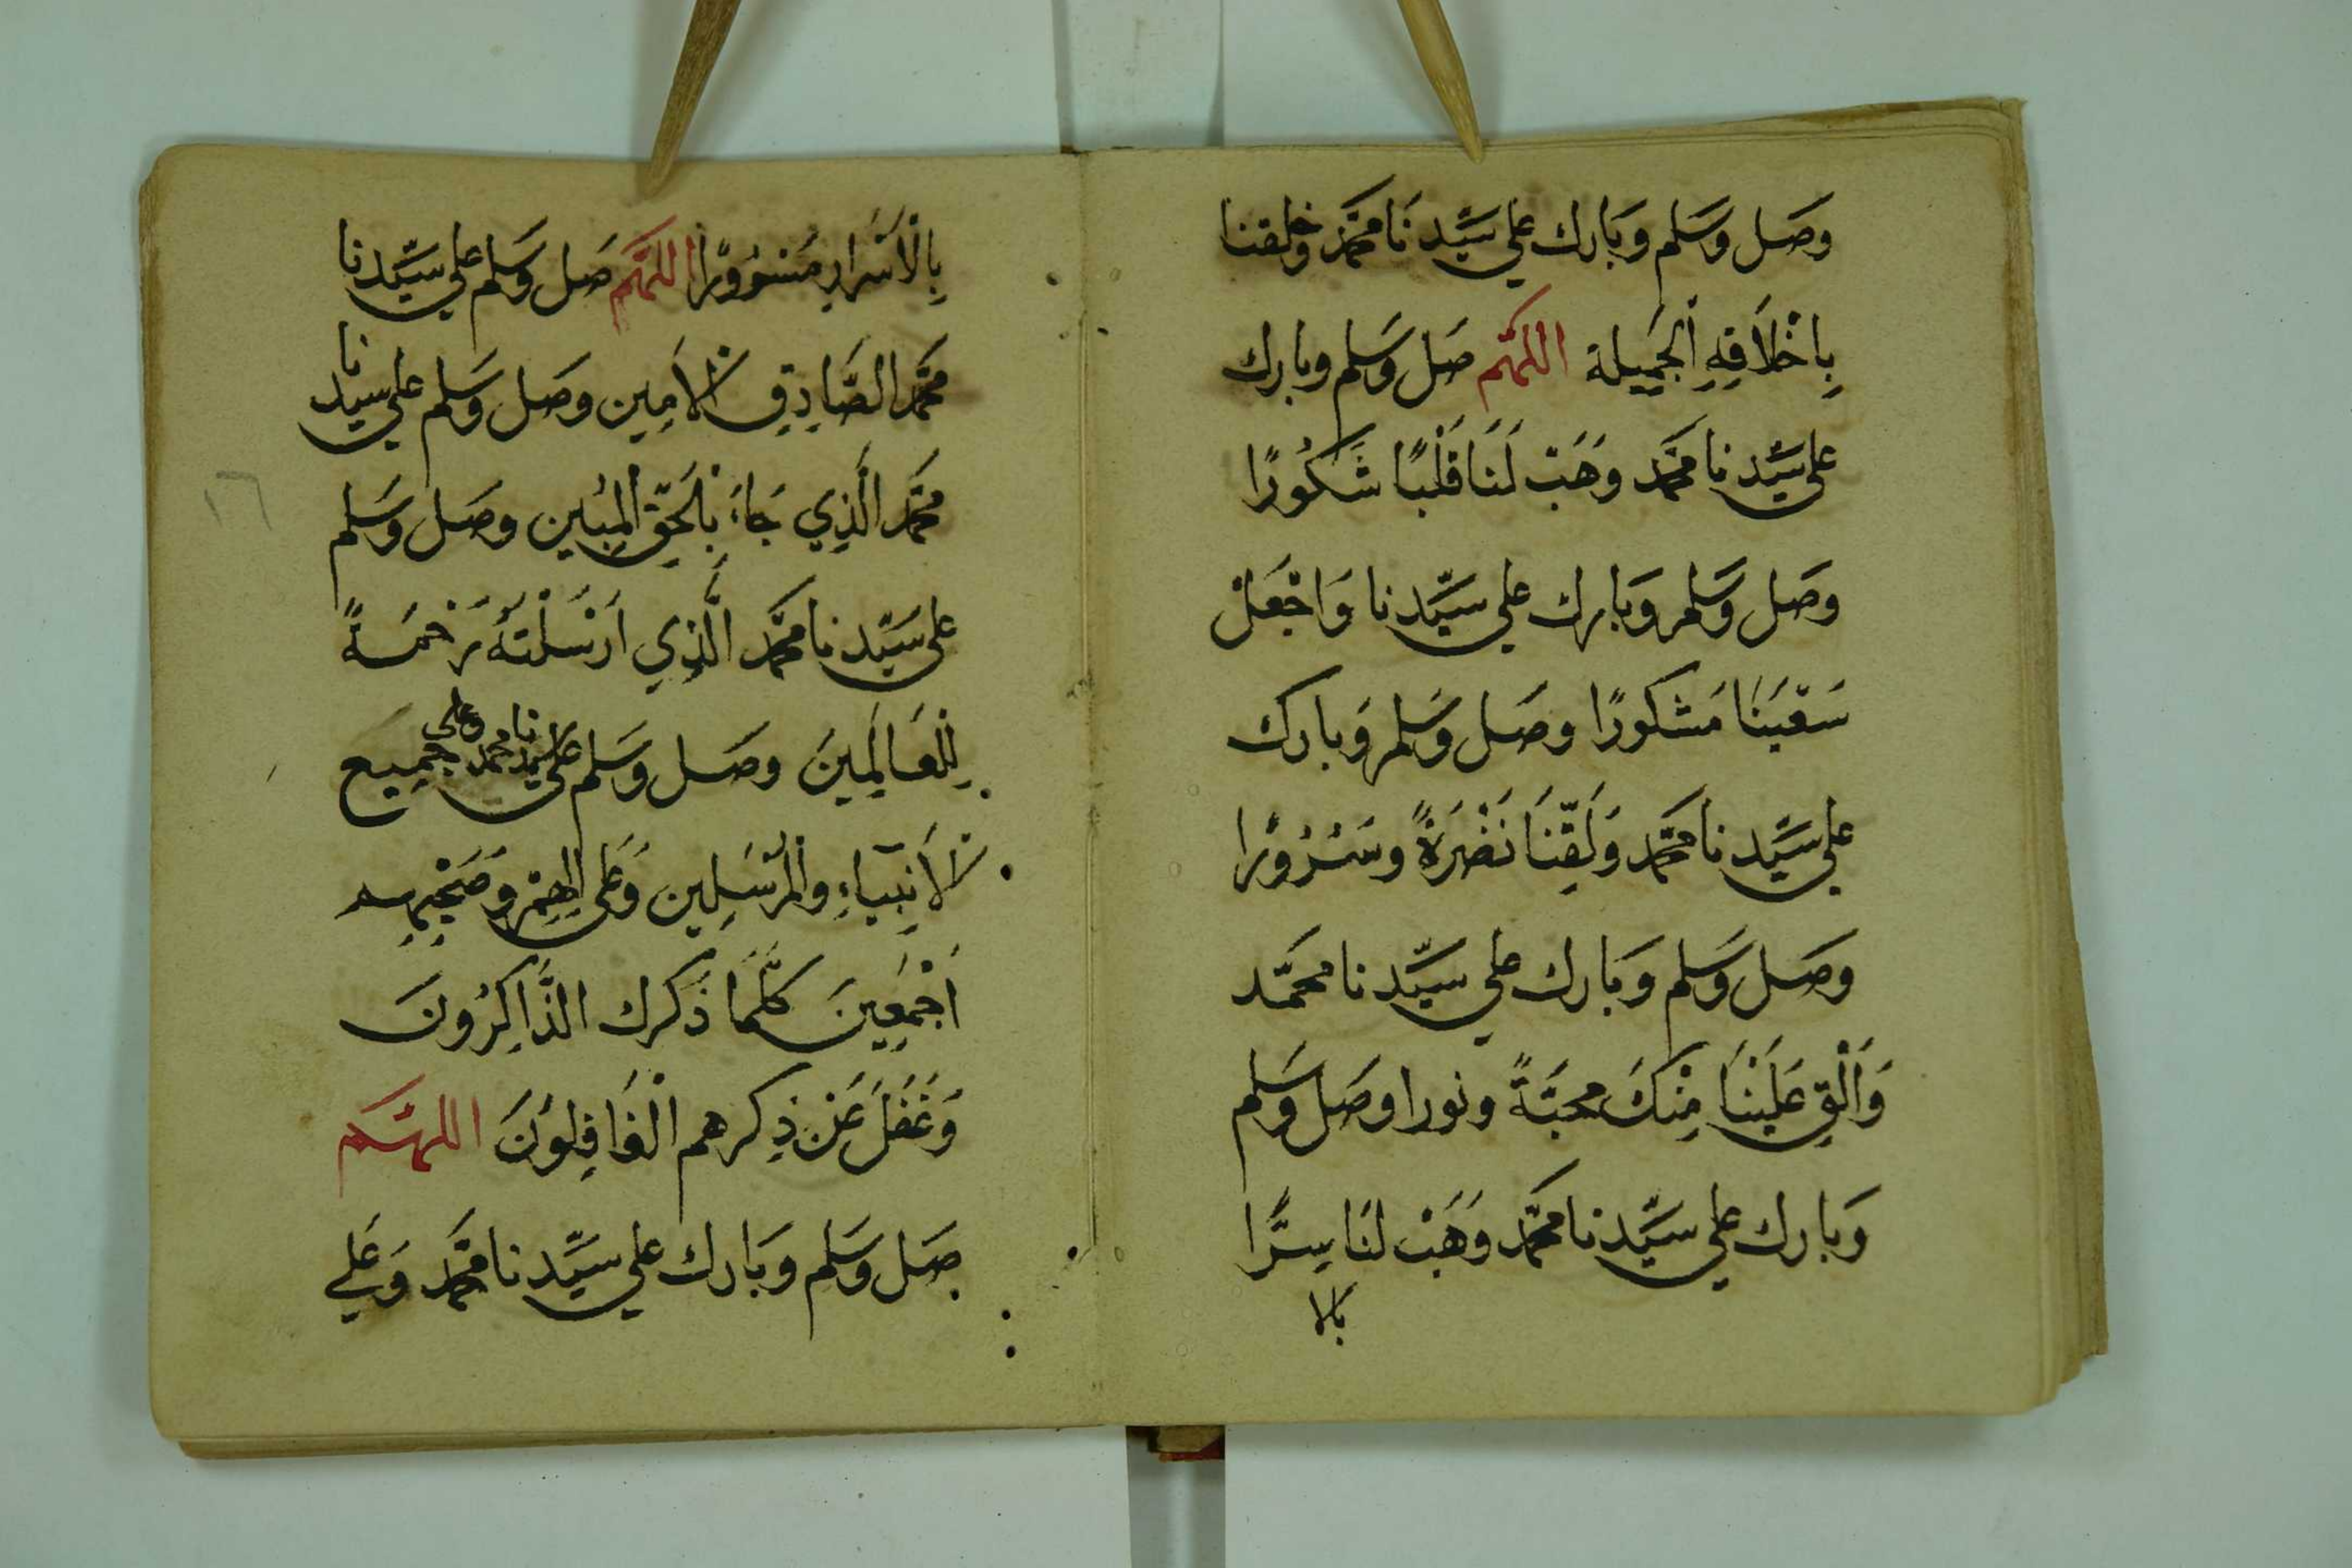 وصَل وسَلم وبَارك علي سَيِّدنَا محمَّد وخلقنا
بِاخْلَاقِهِ الْجَمِيلة اللهُمَّ صَل وَسَلم وبارك
علي سَيِّدنا محمَّد وهَبْ لَنَا قَلْبًا شَكُورًا
وصَل وَسَلم وَبارك علي سَيِّدنا وَاجْعَلْ
سَعْيَنَا مَشكورًا وصَل وَسَلم وَبارك
علي سَيِّدنا محمَّد وَلَقِّنَا نَضْرَةً وسُرُورًا
وصَل وَسَلم وَبَارك علي سَيِّدنا محمَّد
وَأَلْقِ عَلَيْنَا مِنْكَ محبَّةً ونورا وصَل وَسَلم
وَبارك علي سَيِّدنا محمَّد وَهَبْ لنَا سِرًّا
بالا
بِالْاَسْرارِ مَسْرُورًا اللهُمَّ صَل وَسَلم علي سَيِّدنا
محمَّد الصَّادِقِ الْاَمِين وصَل وَسَلم علي سيدنا
محمَّد الَّذِي جَاءَ بِالْحَقِّ الْمُبِين وصَل وسَلم
علي سَيِّدنا محمَّد الَّذِي اَرْسَلْتَهُ رَحْمَةً
لِلْعَالَمِينَ وصَل وسَلم علي سيدنا محمد وعلى جَمِيع
الْاَنبِيَاءِ والْمُرْسَلِين وَعَلى الِهِمْ وصَحْبِهِم
اَجْمَعِينَ كلَّمَا ذَكَرك الذَّاكِرُونَ
وَغَفَلَ عَنْ ذِكرهم الْغَافِلوُنَ اللهُمَّ
صَل وَسَلم وَبَارك علي سَيِّدنا محمَّد وَعَلي
١٦